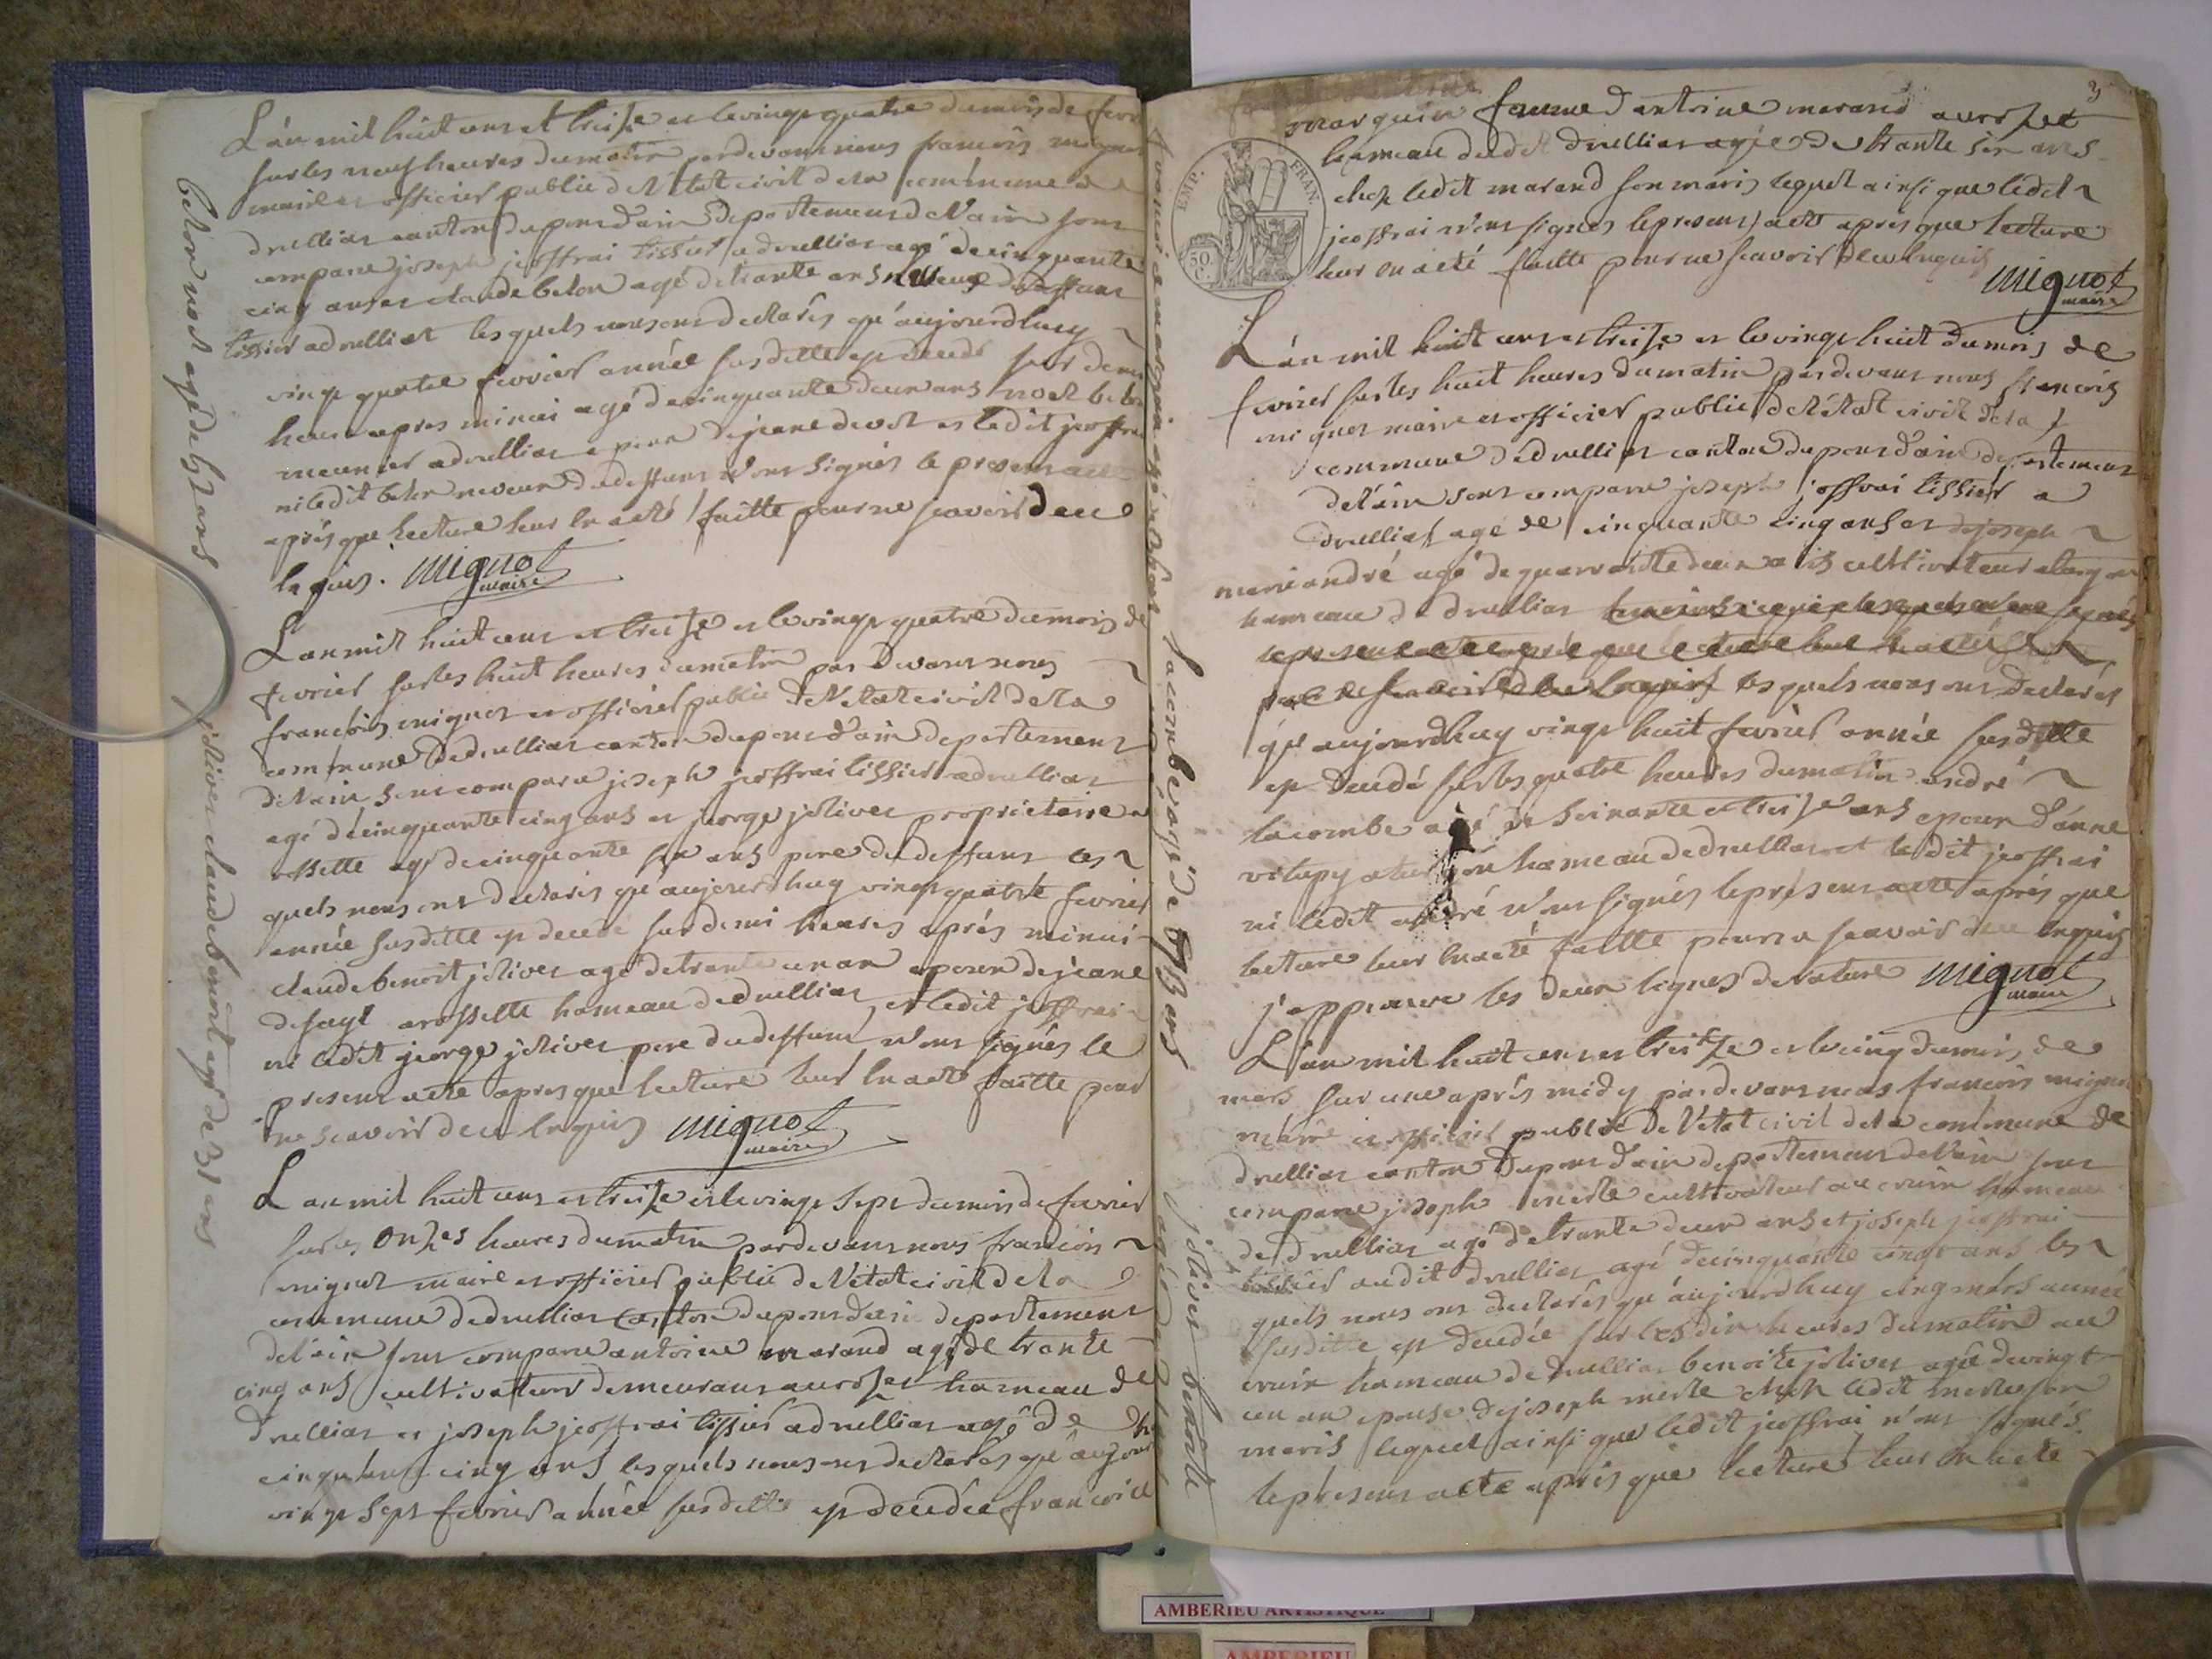 L'an mil huit cens et treise et le vingt quatre du mois de fevr
sur les neuf heures du matin pardevant nous francois mignot
maire et officier public de l'etat civil de la commune de
druillias canton du pons d'ain departement de l'ain sont
comparu joseph jeoffrai tissier a druillias agé de cinquante
cinq ans et claude belon agé de trante ans neveux du deffunt
tissier a druillias les quels nous ont declarés qu'aujourdhuy
vingt quatre fevrier année susditte est decedé sur demi
heure apres minui agé de cinquante deux ans noel belon
meunier a druillias epoux de jeane et ledit jeoffrai
ni ledit belon neveux du deffunt n'ont signés le present acte
aprés que lecture leur en a eté faitte pour ne scavoir de ce
requis. Mignot
maire
L'an mil huit cens et treise et le vingt quatre du mois de
fevrier sur les huit heures du matin par devant nous
francois mignot et officier public de l'etat civil de la
commune de druillias canton du pons d'ain departement
de l'ain sont comparu joseph jeoffrai tissier a druillias
agé de cinquante cinq ans et jeorge jolivet proprietaire a
rossette agé de cinquante six ans pere du deffunt les
quels nous ont declarés qu'aujourdhuy vingt quatre fevrier
année susditte est decedé sur demi heures aprés minui
claude benoit jolivet agé de trante un an epoux de jeane
a rossette hameau de druillias, et ledit jeoffrai
ni ledit jeorge jolivet pere du deffunt n'ont signés le
present acte apres que lecture leur en a eté faitte pour
ne scavoir de ce requis Mignot
maire
L'an mil huit cens et treise et le vingt sept du mois de fevrier
sur les onzes heures du matin pardevant nous francois
mignot maire et officier public de l'etat civil de la
commune de druillias canton du pons d'ain departement
de l'ain sont comparu antoine marand agé de trante
cinq ans cultivateur demeurant au rozet hameau de
druillias et joseph jeoffrai tissier a druillias agé de
cinquante cinq ans les quels nous ont declarés qu'aujourd
vingt sept fevrier année susditte est decedée francoise
belon noel agé de 52 ans
jolivet claude benoit agé de 31 ans
3
marguin femme d'antoine marand au rozet
hameau dudit druillias agée de trante six ans
chez ledit marand son maris lequel ainsi que ledit
jeoffrai n'ont signés le present acte aprés que lecture
leur en a eté faitte pour ne scavoir de ce requis
Mignot
maire
EMP. FRAN.
50 C.
L'an mil huit cens et treise et le vingt huit du mois de
fevrier sur les huit heures du matin pardevant nous francois
mignot maire et officier public de l'état civil de la
commune de druillias canton du pons d'ain departement
de l'ain sont comparu joseph jeoffrai tissier a
druillias agé de cinquante cinq ans et joseph
marie andré agé de quarante deux ans cultivateur
hameau de druillias
les quels nous ont declarés
qu'aujourdhuy vingt huit fevrier année susditte
est decedé sur les quatre heures du matin andré
lacombe agé de soixante et treise ans epoux d'anne
hameau de druillias et ledit jeoffrai
ni ledit andré n'ont signés le présent acte aprés que
lecture leur en a eté faitte pour ne scavoir de ce requis
j'approuve les deux lignes de rature Mignot
maire
L'an mil huit cens et treise et le cinq du mois de
mars sur une aprés midy pardevant nous francois mignot
maire et officier public de l'etat civil de la commune de
druillias canton du pons d'ain departement de l'ain sont
comparu joseph merle cultivateur au cruix hameau
de druillias agé de trante deux ans et joseph jeoffrai
tissier audit druillias agé de cinquante cinq ans les
quels nous ont declarés qu'aujourdhuy cinq mars année
susditte est decedée sur les dix heures du matin au
cruix hameau de druillias benoite jolivet agée de vingt
un an epouse de joseph merle chez ledit merle son
maris lequel ainsi que ledit jeoffrai n'ont signés
le présent acte aprés que lecture leur en a eté
lacombe agé de 73 ans
jolivet benoite
AMBERIEU ARTISTIQUE
AMBERIEU